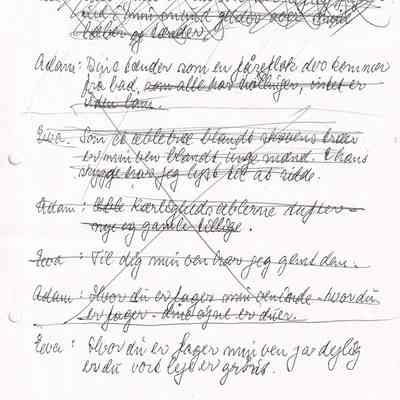 vind i min mund glider over dine
læber og tænder.
Adam: Dine tænder som en fåreflok der kommer
fra bad, som alle har tvillinger, intet er
uden lam.
Eva. Som et æbletræ blandt skovens træer
er min ven blandt unge mænd. I hans
skygge har jeg lyst til at sidde.
Adam: Kærlighedsæblerne dufter -
nye og gamle tillige.
Eva: Til dig min ven har jeg gemt dem.
Adam: Hvor du er fager min veninde - hvor du
er fager - dine øjne er duer.
Eva: Hvor du er fager min ven ja dejlig
er du vort leje er grønt.